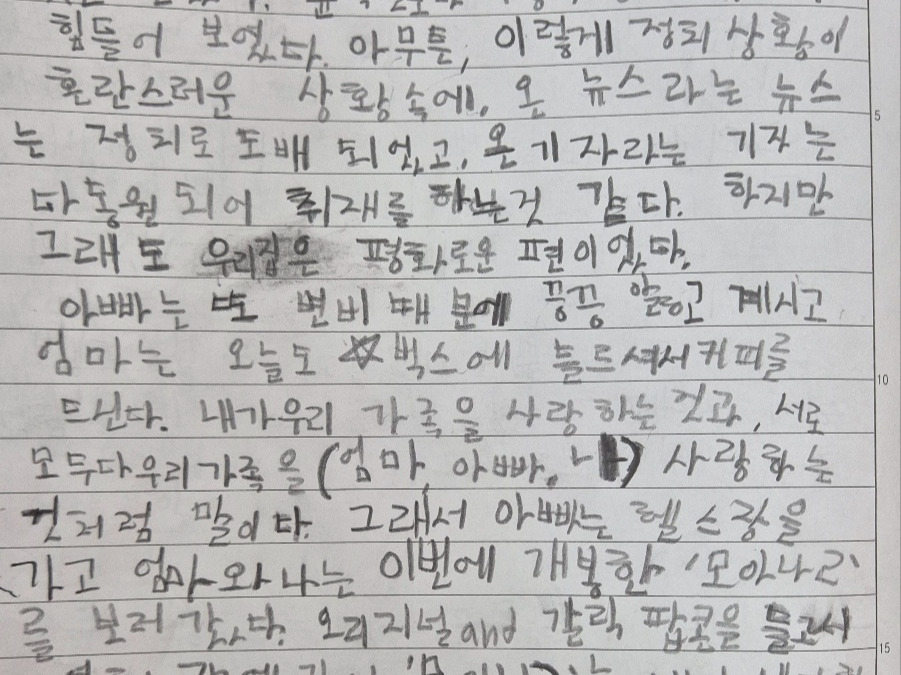 힘들어 보였다. 아무튼, 이렇게 정치 상황이
혼란스러운 상황속에, 온 뉴스라는 뉴스
는 정치로 도배 되었고, 온 기자라는 기자는
다 동원되어 취재를 하는것 같다. 하지만
그래도 우리집은 평화로운 편이었다.
아빠는 또 변비 때문에 끙끙 앓고 계시고
엄마는 오늘도 ☆벅스에 들르셔서 커피를
드신다. 내가 우리 가족을 사랑하는 것과, 서로
모두 다 우리가족을 (엄마, 아빠, 나) 사랑하는
것처럼 말이다. 그래서 아빠는 헬스장을
가고 엄마와 나는 이번에 개봉한 '모아나2'
를 보러 갔다. 오리지널and 갈릭 팝콘을 들고서
5
10
15